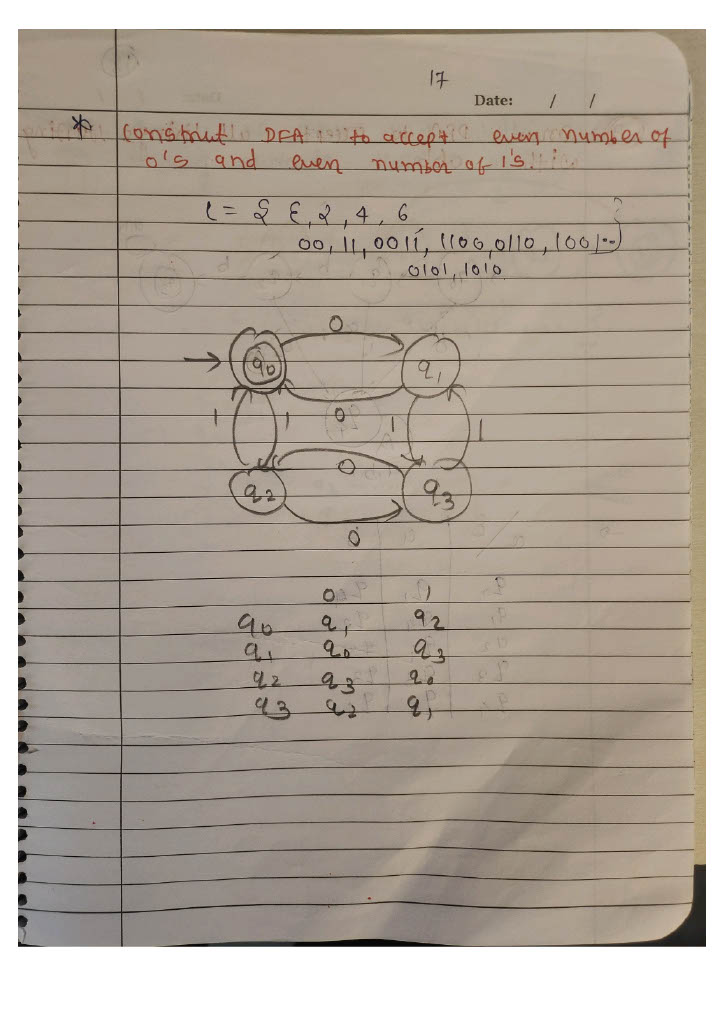 17
Date: / /
* Construct DFA to accept even number of
0's and even number of 1's.
L = { ε, 2, 4, 6
00, 11, 0011, 1100, 0110, 1001-- }
0101, 1010
0
q0 q1
1 1 0 1 1
0
q2 q3
0
0 1
q0 q1 q2
q1 q0 q3
q2 q3 q0
q3 q2 q1